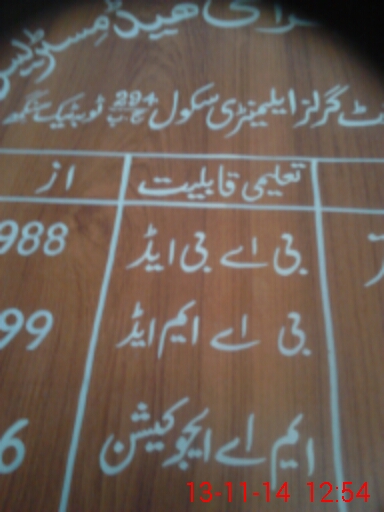 کی ہیڈ مسٹریس
گرلز ایلیمنٹری سکول 294 ج۔ب ٹوبہ ٹیک سنگھ
تعلیمی قابلیت از
بی اے بی ایڈ 988
بی اے ایم ایڈ 99
ایم اے ایجوکیشن 6
13-11-14 12:54